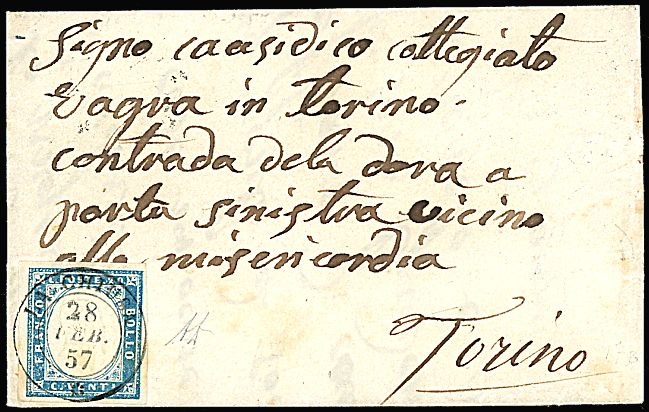 Signo causidico collegiato
vagra in torino.
contrada dela dora a
porta sinistra vicino
alla misericordia
Torino
FRANCO BOLLO
C. VENTI
28
FEB.
57